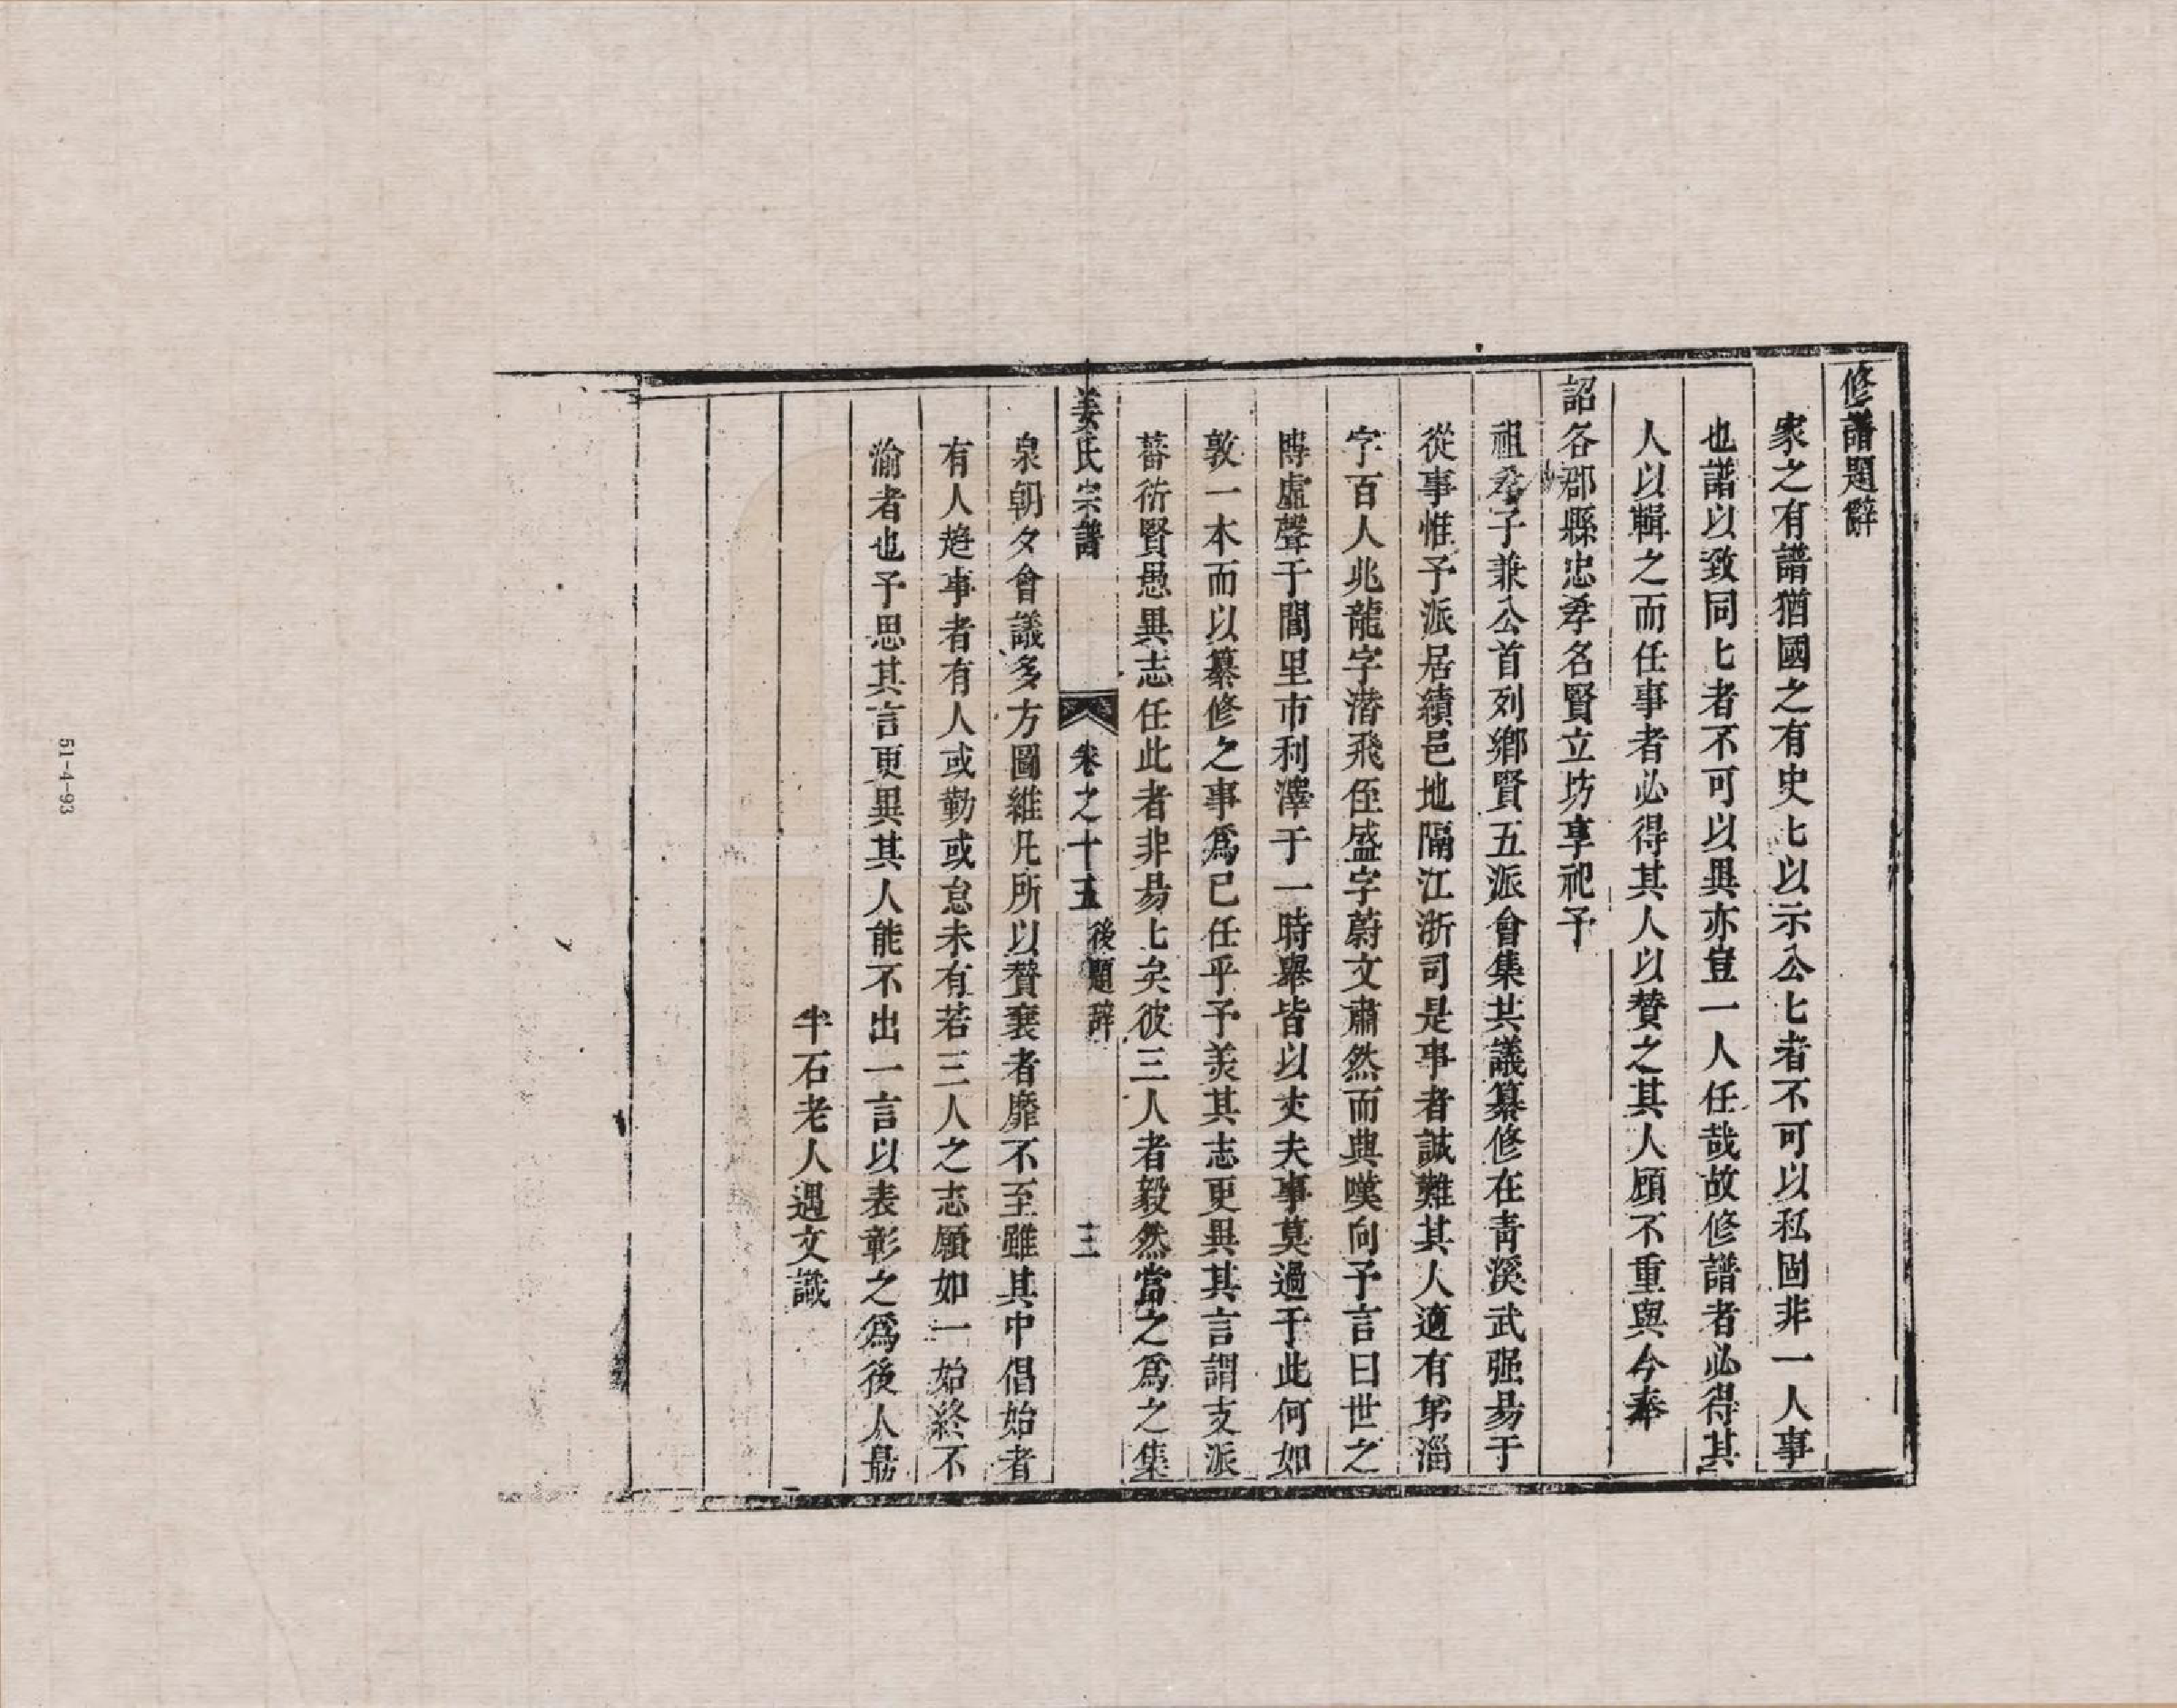 修譜題辭
家之有譜猶國之有史匕以示公匕者不可以私固非一人事
也譜以致同匕者不可以異亦豈一人任哉故修譜者必得其
人以輯之而任事者必得其人以贊之其人顧不重與今奉
詔各郡縣忠孝名賢立坊享祀予
祖孝子兼公首列鄉賢五派會集共議纂修在青溪武强易于
從事惟予派居績邑地隔江浙司是事者誠難其人適有弟淄
字百人兆龍字潜飛侄盛字蔚文肅然而典嘆向予言曰世之
博虛聲于閭里市利澤于一時舉皆以丈夫事莫過于此何如
敦一本而以纂修之事爲已任乎予美其志更異其言謂支派
蕃衍賢愚異志任此者非易匕矣彼三人者毅然當之爲之集
姜氏宗譜 卷之十五 後題辭 三
泉朝夕會議多方圖維凡所以贊襄者靡不至雖其中倡始者
有人趨事者有人或勤或怠未有若三人之志願如一始終不
渝者也予思其言更異其人能不出一言以表彰之爲後人最
半石老人遇文識
51-4-93